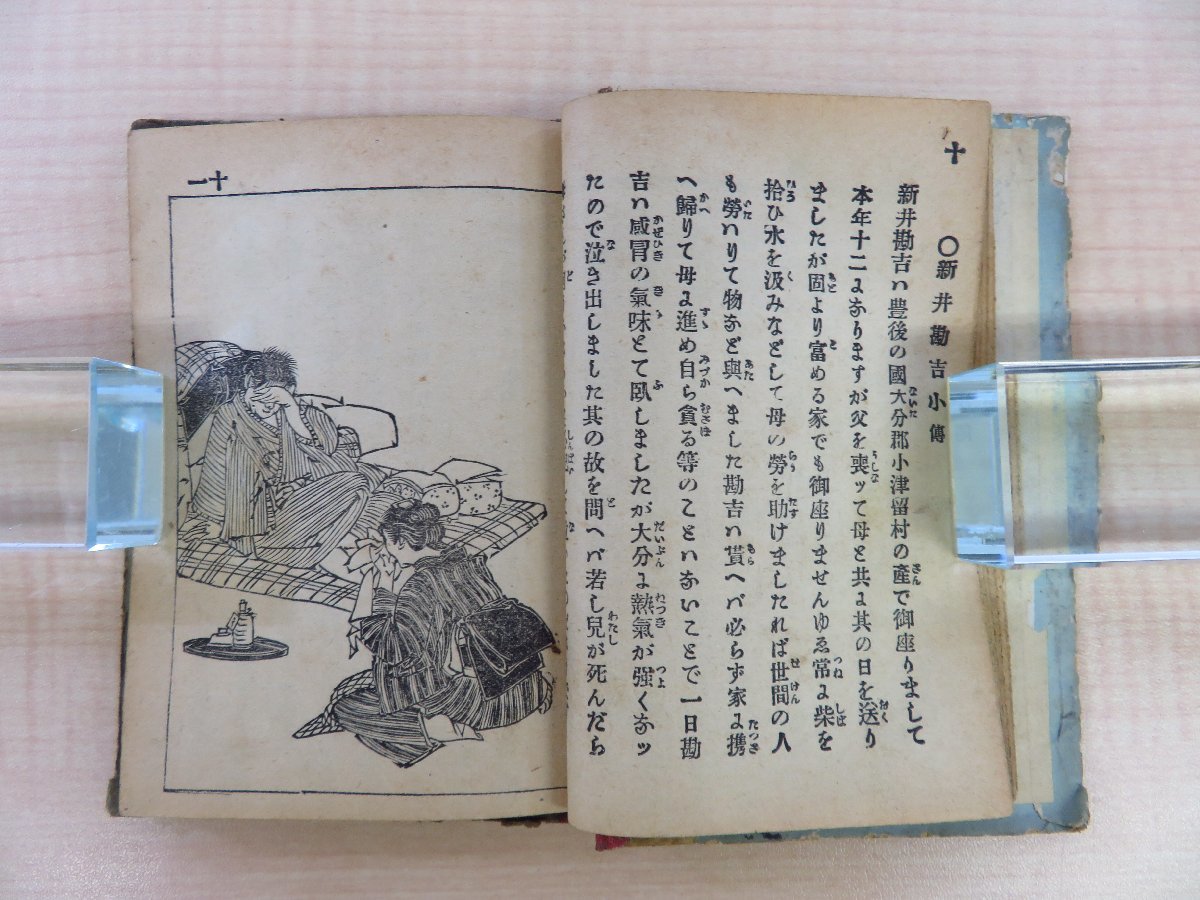 十
〇新井勘吉小傳
新井勘吉ハ豊後の國大分郡小津留村の產で御座りまして
本年十二になりますが父を喪ッて母と共に其の日を送り
ましたが固より富める家でも御座りませんゆゑ常に柴を
拾ひ水を汲みなどして母の勞を助けましたれば世間の人
も勞ハりて物など與へました勘吉ハ貰へバ必らず家に携
へ歸りて母に進め自ら貪る等のことハないことで一日勘
吉ハ感冒の氣味とて臥しましたが大分に熱氣が强くなッ
たので泣き出しました其の故を問へバ若し兒が死んだら
十一